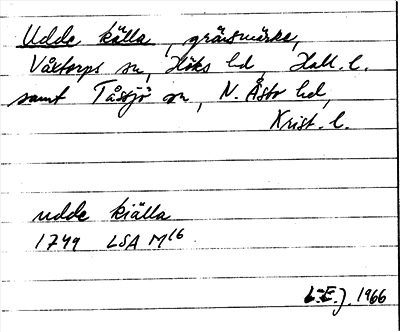 Udde källa, gränsmärke,
Våxtorps sn, Höks hd, Hall. l.
samt Tåssjö sn, N. Åsbo hd,
Krist. l.
udde kiälla
1749 LSA M16
L:E. J. 1966